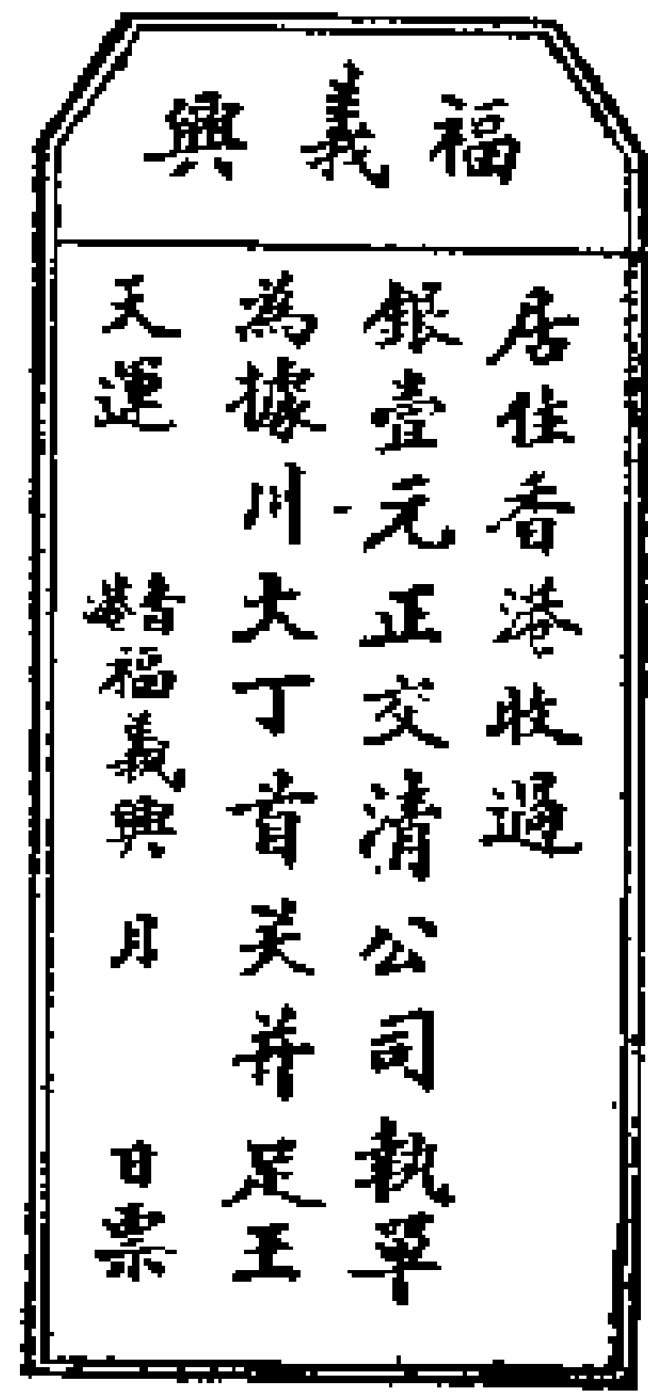 福義興
居住香港收過
銀壹元正交清公司執單
為據川大丁首关井足王
天運 福義興 月 日票